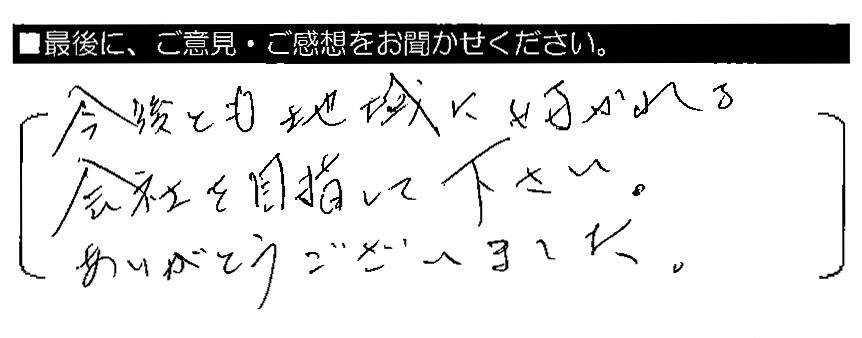 ■最後に、ご意見・ご感想をお聞かせください。
今後とも地域に好かれる
会社を目指して下さい。
ありがとうございました。